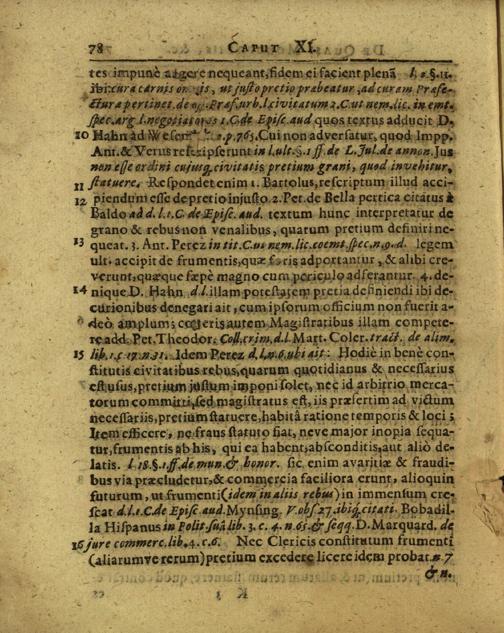 78 CAPUT XI.
tes impunè augere nequeant, fidem ei facient plenā l. 1. §. 11.
ibi: cura carnis omnis, ut justo pretio præbeatur, ad curam Præfe-
ctura pertinet. de off. Præf. urb. l. civitatum 2. C. ut nem. lic. in emt.
spec. arg. l. negotiatores 1. C. de Episc. aud quos textus adducit D.
10 Hahn ad p. 763. Cui non adversatur, quod Impp.
Ant. & Verus rescripserunt in l. ult. §. 1 ff. de L. Jul. de annon. Jus
non esse ordini cujusq; civitatis pretium grani, quod invehitur,
11 statuere. Respondet enim 1. Bartolus, rescriptum illud acci-
12 piendum esse de pretio injusto 2. Pet. de Bella pertica citatus à
Baldo ad d. l. 1. C. de Episc. aud. textum hunc interpretatur de
grano & rebus non venalibus, quatum pretium definiri ne-
13 queat. 3. Ant. Perez in tit. C. ut nem. lic. coemt. spec. n. 9. d. legem
ult. accipit de frumentis, quæ foris adportantur, & alibi cre-
verunt, quæque sæpè magno cum periculo adferantur. 4. de-
14 nique D. Hahn d. l. illam potestatem pretia definiendi ibi de-
curionibus denegari ait, cum ipsorum officium non fuerit a-
deò amplum; cæteris autem Magistratibus illam compete-
re add. Pet. Theodor. Coll. crim. d. l. Mart. Coler. tract. de alim.
15 lib. 1. c 17. n 31. Idem Perez d. l. n. 6. ubi ait: Hodiè in benè con-
stitutis civitatibus rebus, quarum quotidianus & necessarius
est usus, pretium justum imponi solet, nec id arbitrio merca-
torum committi, sed magistratus est, iis præsertim ad victum
necessariis, pretium statuere, habitâ ratione temporis & loci;
Item efficere, ne fraus statuto fiat, neve major inopia sequa-
tur, frumentis ab his, qui ea habent, absconditis, aut aliò de-
latis. l. 18. §. 1 ff. de mun. & honor. sic enim avaritiæ & fraudi-
bus via præcluderur, & commercia faciliora erunt, alioquin
futurum, ut frumenti (idem in aliis rebus) in immensum cre-
scat d. l. 1. C. de Episc. aud. Mynsing. V. obs. 27. ibiq; citati. Bobadil-
la Hispanus in Polit suâ lib. 3. c. 4. n. 65. & seqq. D. Marquard. de
16 jure commerc. lib. 4. c. 6. Nec Clericis constitutum frumenti
(aliarumve rerum) pretium excedere licere idem probat n. 7
& n.